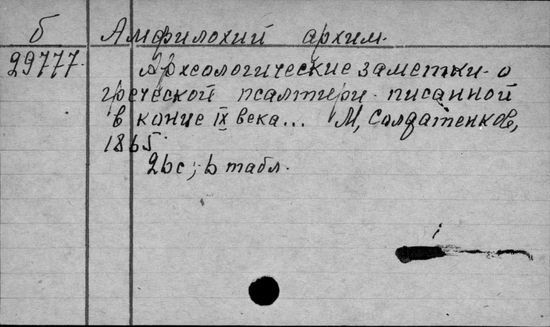 б Амфилохий архим.
29777. Археологические заметки о
греческой псалтири писанной
в конце IX века... М, Солдатенков,
1865.
26с; 6 табл.